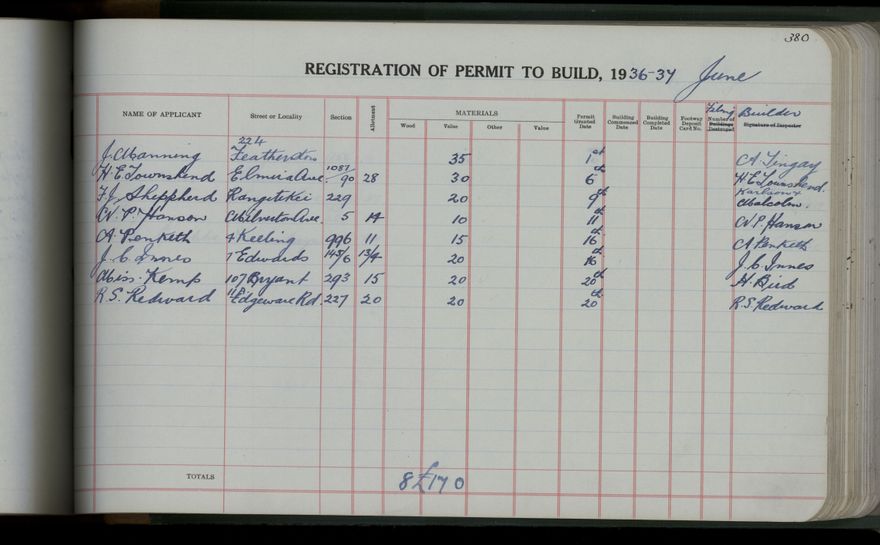 380
REGISTRATION OF PERMIT TO BUILD, 1936-37 June
NAME OF APPLICANT Street or Locality Section Allotment MATERIALS Permit Granted Date Building Commenced Date Building Completed Date Footway Deposit Card No. Filing Number of Buildings Destroyed Builder Signature of Inspector
Wood Value Other Value
J. Manning 224 Featherston 35 1st A. Tingay
H. E. Townshend Elmira Ave. 1087/90 28 30 6th H E Townshend
F. J. Sheppherd Rangitikei 229 20 9th Karlson & Malcolm.
W. P. Hanson Milverton Ave. 5 14 10 11th W P. Hanson
A. Penketh 4 Keeling 996 11 15 16th A Penketh
J. C. Innes 7 Edwards 1445/6 13/4 20 16th J. C Innes
Miss Kemp 107 Bryant 293 15 20 20th H. Bird
R. S. Redward Edgeware Rd. 227 20 20 20th R. S. Redward
TOTALS 8 £170